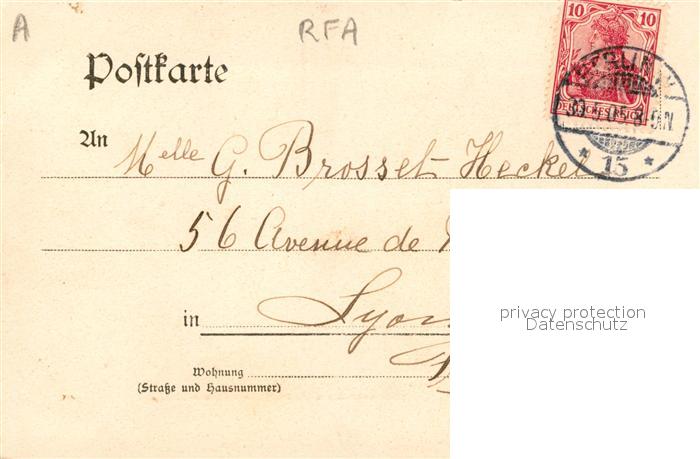 A
RFA
10 10
DEUTSCHES REICH
BERLIN W
15
Postkarte
An Melle G. Brosset-Heckel
56 Avenue de
in Lyon
privacy protection
Datenschutz
Wohnung
(Straße und Hausnummer)